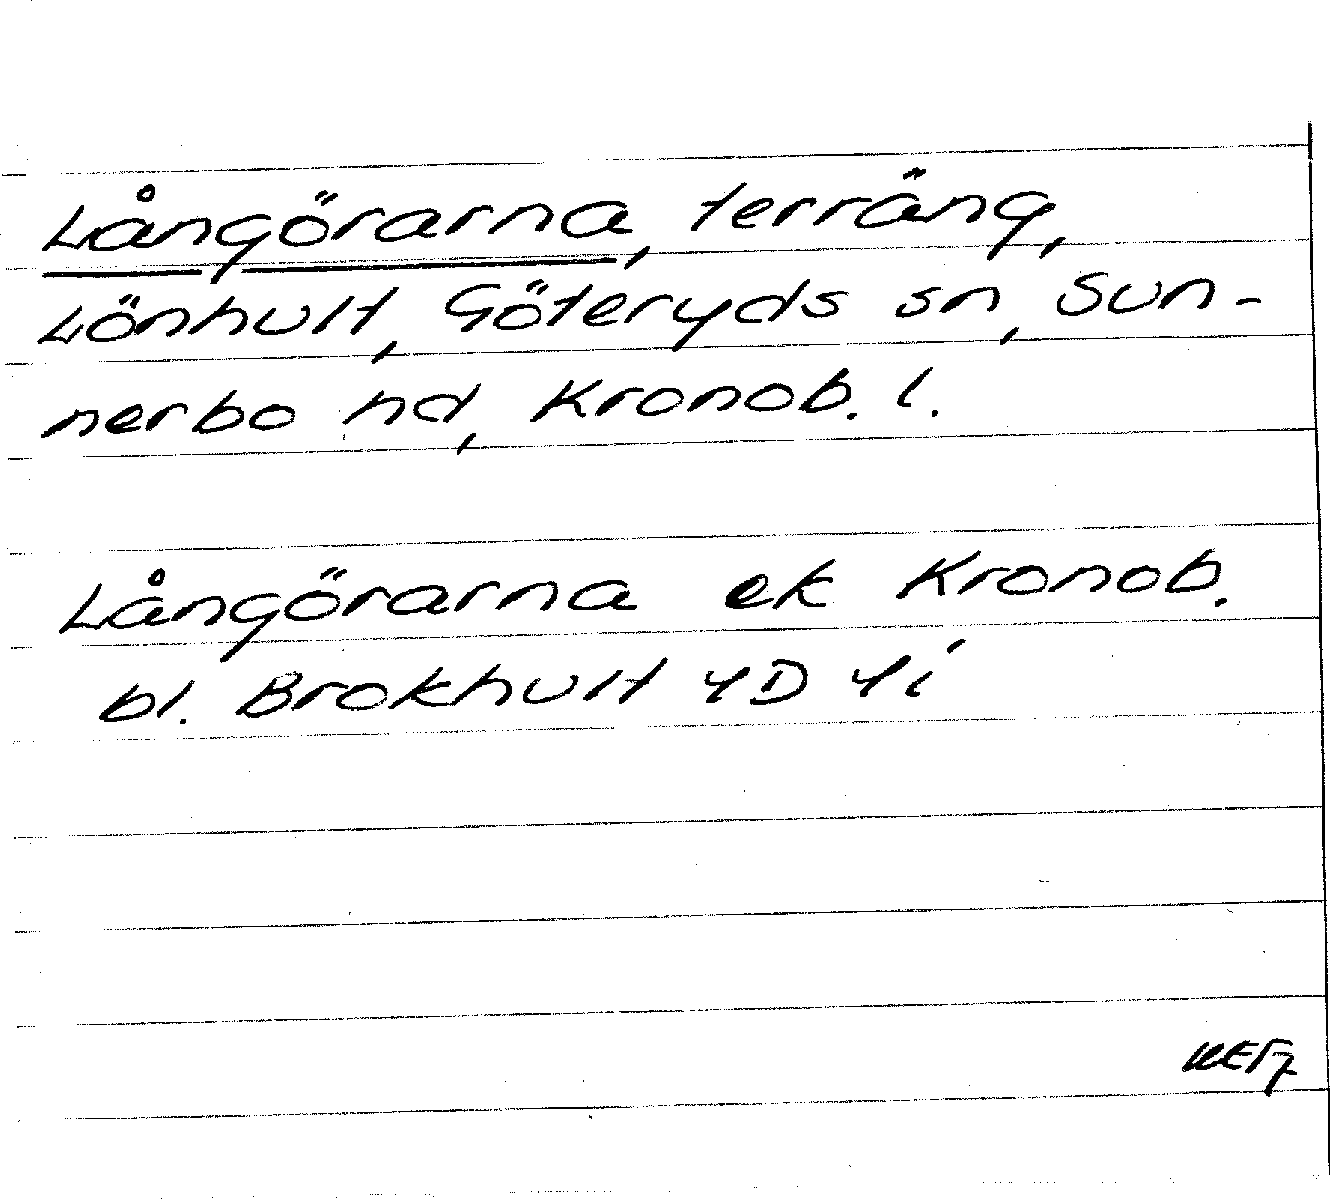 Långörarna, terräng,
Lönhult, Göteryds sn, Sun-
nerbo hd, Kronob. l.
Långörarna ek Kronob.
bl. Brokhult 4D 4i